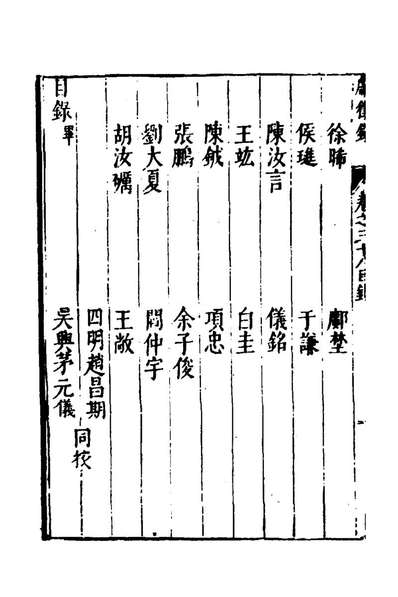 獻徵錄 卷之三十八目錄
徐晞 鄺埜
侯璡 于謙
陳汝言 儀銘
王竑 白圭
陳鉞 項忠
張鵬 余子俊
劉大夏 閻仲宇
胡汝礪 王敞
四明趙昌期
同校
吳興茅元儀
目錄畢